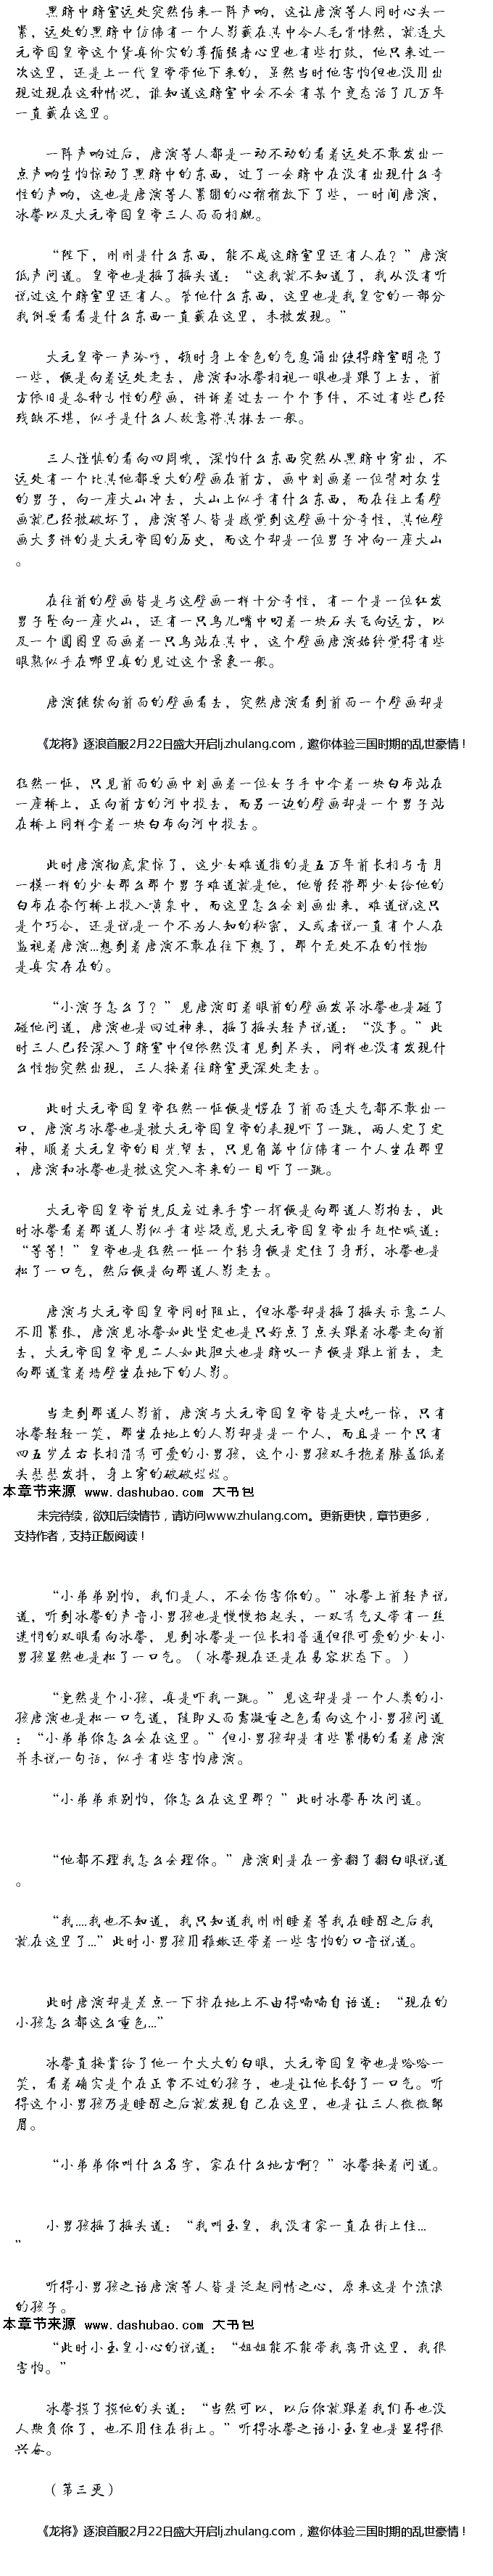 黑暗中暗室远处突然传来一阵声响，这让唐演等人同时心头一
紧，远处的黑暗中仿佛有一个人影藏在其中令人毛骨悚然，就连大
元帝国皇帝这个货真价实的尊循强者心里也有些打鼓，他只来过一
次这里，还是上一代皇帝带他下来的，虽然当时他害怕但也没用出
现过现在这种情况，谁知道这暗室中会不会有某个变态活了几万年
一直藏在这里。
一阵声响过后，唐演等人都是一动不动的看着远处不敢发出一
点声响生怕惊动了黑暗中的东西，过了一会暗中在没有出现什么奇
怪的声响，这也是唐演等人紧绷的心稍稍放下了些，一时间唐演，
冰馨以及大元帝国皇帝三人面面相觑。
“陛下，刚刚是什么东西，能不成这暗室里还有人在？”唐演
低声问道。皇帝也是摇了摇头道：“这我就不知道了，我从没有听
说过这个暗室里还有人。管他什么东西，这里也是我皇宫的一部分
我倒要看看是什么东西一直藏在这里，未被发现。”
大元皇帝一声冷哼，顿时身上金色的气息涌出使得暗室明亮了
一些，便是向着远处走去，唐演和冰馨相视一眼也是跟了上去，前
方依旧是各种古怪的壁画，讲诉着过去一个个事件，不过有些已经
残缺不堪，似乎是什么人故意将其抹去一般。
三人谨慎的看向四周哦，深怕什么东西突然从黑暗中穿出，不
远处有一个比其他都要大的壁画在前方，画中刻画着一位背对众生
的男子，向一座大山冲去，大山上似乎有什么东西，而在往上看壁
画就已经被破坏了，唐演等人皆是感觉到这壁画十分奇怪，其他壁
画大多讲的是大元帝国的历史，而这个却是一位男子冲向一座大山
。
在往前的壁画皆是与这壁画一样十分奇怪，有一个是一位红发
男子坠向一座火山，还有一只鸟儿嘴中叼着一块石头飞向远方，以
及一个圆圈里面画着一只鸟站在其中，这个壁画唐演始终觉得有些
眼熟似乎在哪里真的见过这个景象一般。
唐演继续向前面的壁画看去，突然唐演看到前面一个壁画却是
《龙将》逐浪首服2月22日盛大开启lj.zhulang.com，邀你体验三国时期的乱世豪情！
猛然一怔，只见前面的画中刻画着一位女子手中拿着一块白布站在
一座桥上，正向前方的河中投去，而另一边的壁画却是一个男子站
在桥上同样拿着一块白布向河中投去。
此时唐演彻底震惊了，这少女难道指的是五万年前长相与青月
一模一样的少女那么那个男子难道就是他，他曾经将那少女给他的
白布在奈何桥上投入黄泉中，而这里怎么会刻画出来，难道说这只
是个巧合，还是说是一个不为人知的秘密，又或者说一直有个人在
监视着唐演...想到着唐演不敢在往下想了，那个无处不在的怪物
是真实存在的。
“小演子怎么了？”见唐演盯着眼前的壁画发呆冰馨也是碰了
碰他问道，唐演也是回过神来，摇了摇头轻声说道：“没事。”此
时三人已经深入了暗室中但依然没有见到尽头，同样也没有发现什
么怪物突然出现，三人接着往暗室更深处走去。
此时大元帝国皇帝猛然一怔便是愣在了前面连大气都不敢出一
口，唐演与冰馨也是被大元帝国皇帝的表现吓了一跳，两人定了定
神，顺着大元皇帝的目光望去，只见角落中仿佛有一个人坐在那里
，唐演和冰馨也是被这突入齐来的一目吓了一跳。
大元帝国皇帝首先反应过来手掌一挥便是向那道人影拍去，此
时冰馨看着那道人影似乎有些疑惑见大元帝国皇帝出手赶忙喊道：
“等等！”皇帝也是猛然一怔一个转身便是定住了身形，冰馨也是
松了一口气，然后便是向那道人影走去。
唐演与大元帝国皇帝同时阻止，但冰馨却是摇了摇头示意二人
不用紧张，唐演见冰馨如此坚定也是只好点了点头跟着冰馨走向前
去，大元帝国皇帝见二人如此胆大也是暗叹一声便是跟上前去，走
向那道靠着墙壁坐在地下的人影。
当走到那道人影前，唐演与大元帝国皇帝皆是大吃一惊，只有
冰馨轻轻一笑，那坐在地上的人影却是是一个人，而且是一个只有
四五岁左右长相清秀可爱的小男孩，这个小男孩双手抱着膝盖低着
头瑟瑟发抖，身上穿的破破烂烂。
本章节来源 www.dashubao.com 大书包
未完待续，欲知后续情节，请访问www.zhulang.com。更新更快，章节更多，
支持作者，支持正版阅读！
“小弟弟别怕，我们是人，不会伤害你的。”冰馨上前轻声说
道，听到冰馨的声音小男孩也是慢慢抬起头，一双秀气又带有一丝
迷惘的双眼看向冰馨，见到冰馨是一位长相普通但很可爱的少女小
男孩显然也是松了一口气。（冰馨现在还是在易容状态下。）
“竟然是个小孩，真是吓我一跳。”见这却是是一个人类的小
孩唐演也是松一口气道，随即又面露凝重之色看向这个小男孩问道
：“小弟弟你怎么会在这里。”但小男孩却是有些紧惕的看着唐演
并未说一句话，似乎有些害怕唐演。
“小弟弟乖别怕，你怎么在这里那？”此时冰馨再次问道。
“他都不理我怎么会理你。”唐演则是在一旁翻了翻白眼说道
。
“我....我也不知道，我只知道我刚刚睡着等我在睡醒之后我
就在这里了...”此时小男孩用稚嫩还带着一些害怕的口音说道。
此时唐演却是差点一下扑在地上不由得喃喃自语道：“现在的
小孩怎么都这么重色...”
冰馨直接赏给了他一个大大的白眼，大元帝国皇帝也是哈哈一
笑，看着确实是个在正常不过的孩子，也是让他长舒了一口气。听
得这个小男孩乃是睡醒之后就发现自己在这里，也是让三人微微邹
眉。
“小弟弟你叫什么名字，家在什么地方啊？”冰馨接着问道。
小男孩摇了摇头道：“我叫玉皇，我没有家一直在街上住...
”
听得小男孩之语唐演等人皆是泛起同情之心，原来这是个流浪
的孩子。
本章节来源 www.dashubao.com 大书包
“此时小玉皇小心的说道：“姐姐能不能带我离开这里，我很
害怕。”
冰馨摸了摸他的头道：“当然可以，以后你就跟着我们再也没
人欺负你了，也不用住在街上。”听得冰馨之语小玉皇也是显得很
兴奋。
（第三更）
《龙将》逐浪首服2月22日盛大开启lj.zhulang.com，邀你体验三国时期的乱世豪情！